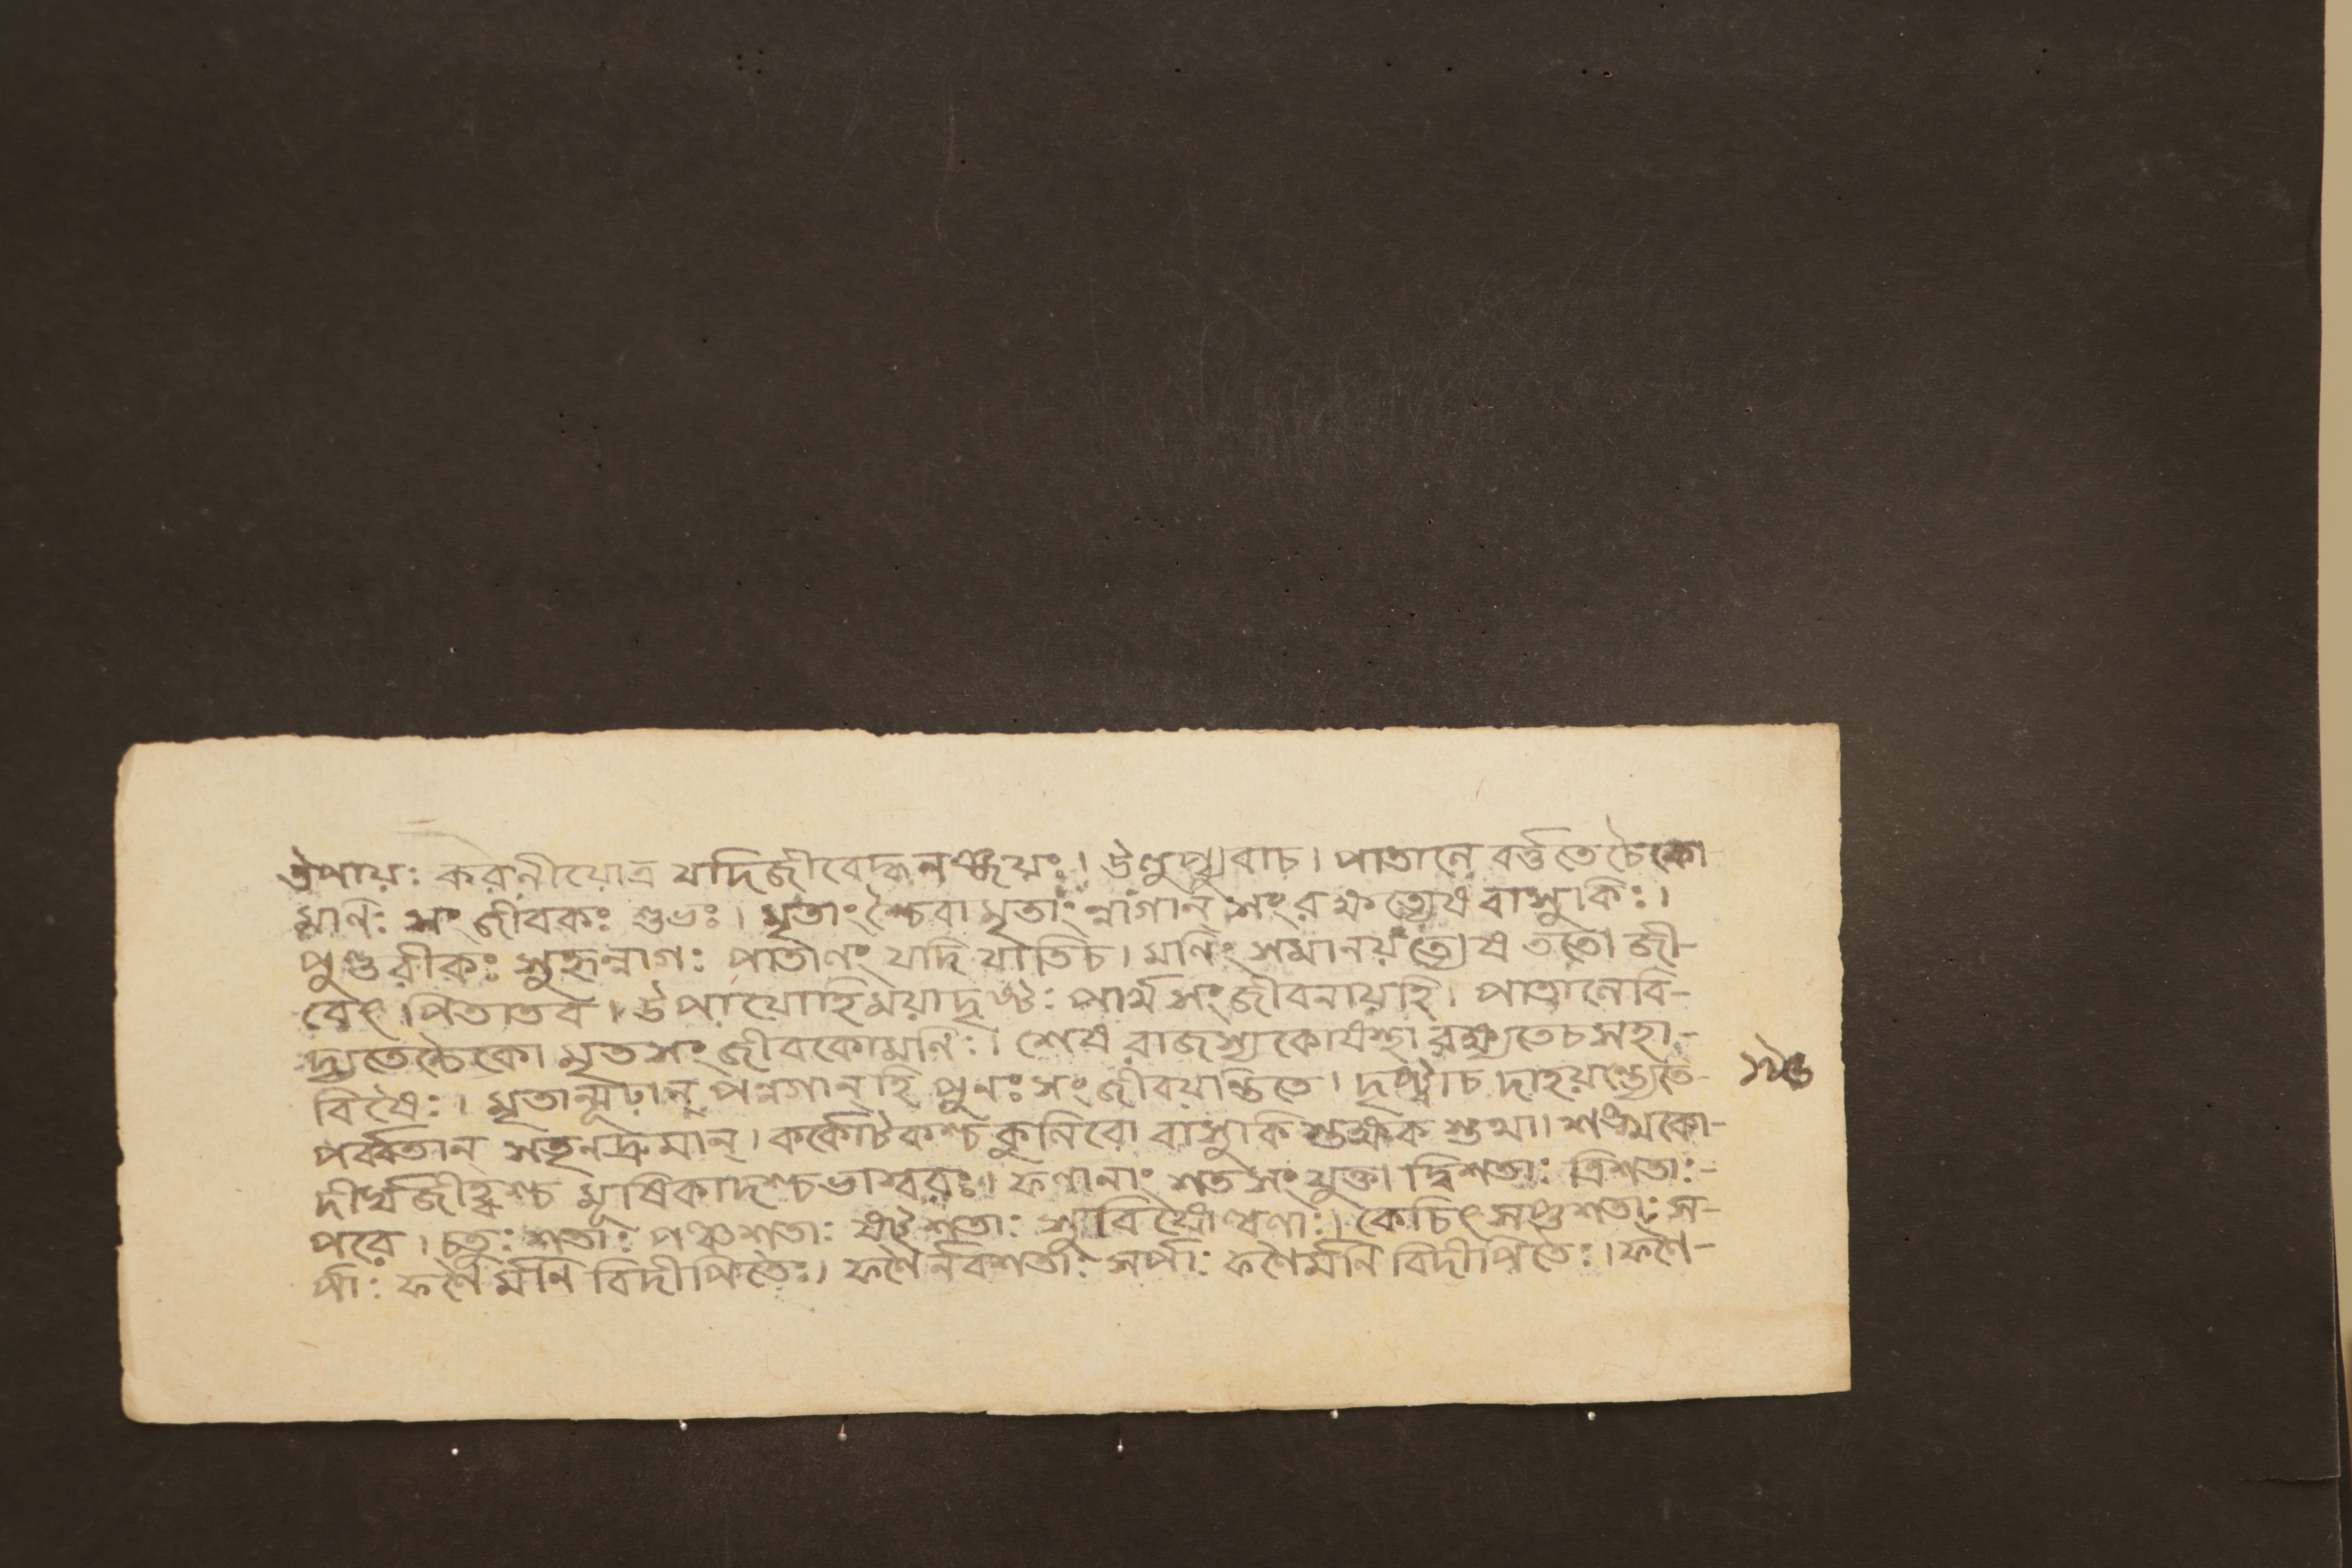 উপায়ঃ করনীয়োত্র যদিজীবেদ্ধনঞ্জয়ঃ। উলুপ্যুবাচ। পাতালে বর্ত্ততে চৈকো
মণিঃ সংজীবকঃ শুভঃ। মৃতাংশ্চৈবামৃতাংন্নাগান্ সংরক্ষত্যেষ বাসুকিঃ।
পুণ্ডরীকঃ সুহৃন্নাগঃ পাতালং যদি যাতিচ। মণিং সমানয়ত্যেষ ততো জী-
বেৎ পিতাতব। উপায়োহিময়াদৃষ্টঃ পার্থসংজীবনায়হি। পাতালেবি-
দ্যতেচৈকো মৃতসংজীবকোমণিঃ। শেষরাজস্য রক্ষ্যতেচ সহা-
বিষৈঃ। মৃতান্মূঢান্ পন্নগান্ হি পুনঃ সংজীবয়ন্তিতে। দৃষ্ট্বাচ দাহয়ন্ত্যেতে-
পর্ব্বতান্ সতৃনদ্রুমান্। কর্কোটকশ্চ কুলিরো বাসুকিস্তক্ষকস্তথা। শঙ্খকো-
দীর্ঘজীহ্বশ্চ মূষিকাদশ্চভাস্বরঃ। ফণানাং শতসংযুক্তা দ্বিশতাঃ ত্রিশতাঃ-
পরে। চতুঃশতাঃ পঞ্চশতাঃ ষটশতাঃ সুবিষোল্বণাঃ। কেচিৎসপ্তশতাঃ স-
র্পাঃ ফণৈর্মনি বিদীপিতৈঃ। ফণৈর্নবশতাঃ সর্পাঃ ফণৈর্মনি বিদীপিতৈঃ। ফণৈ-